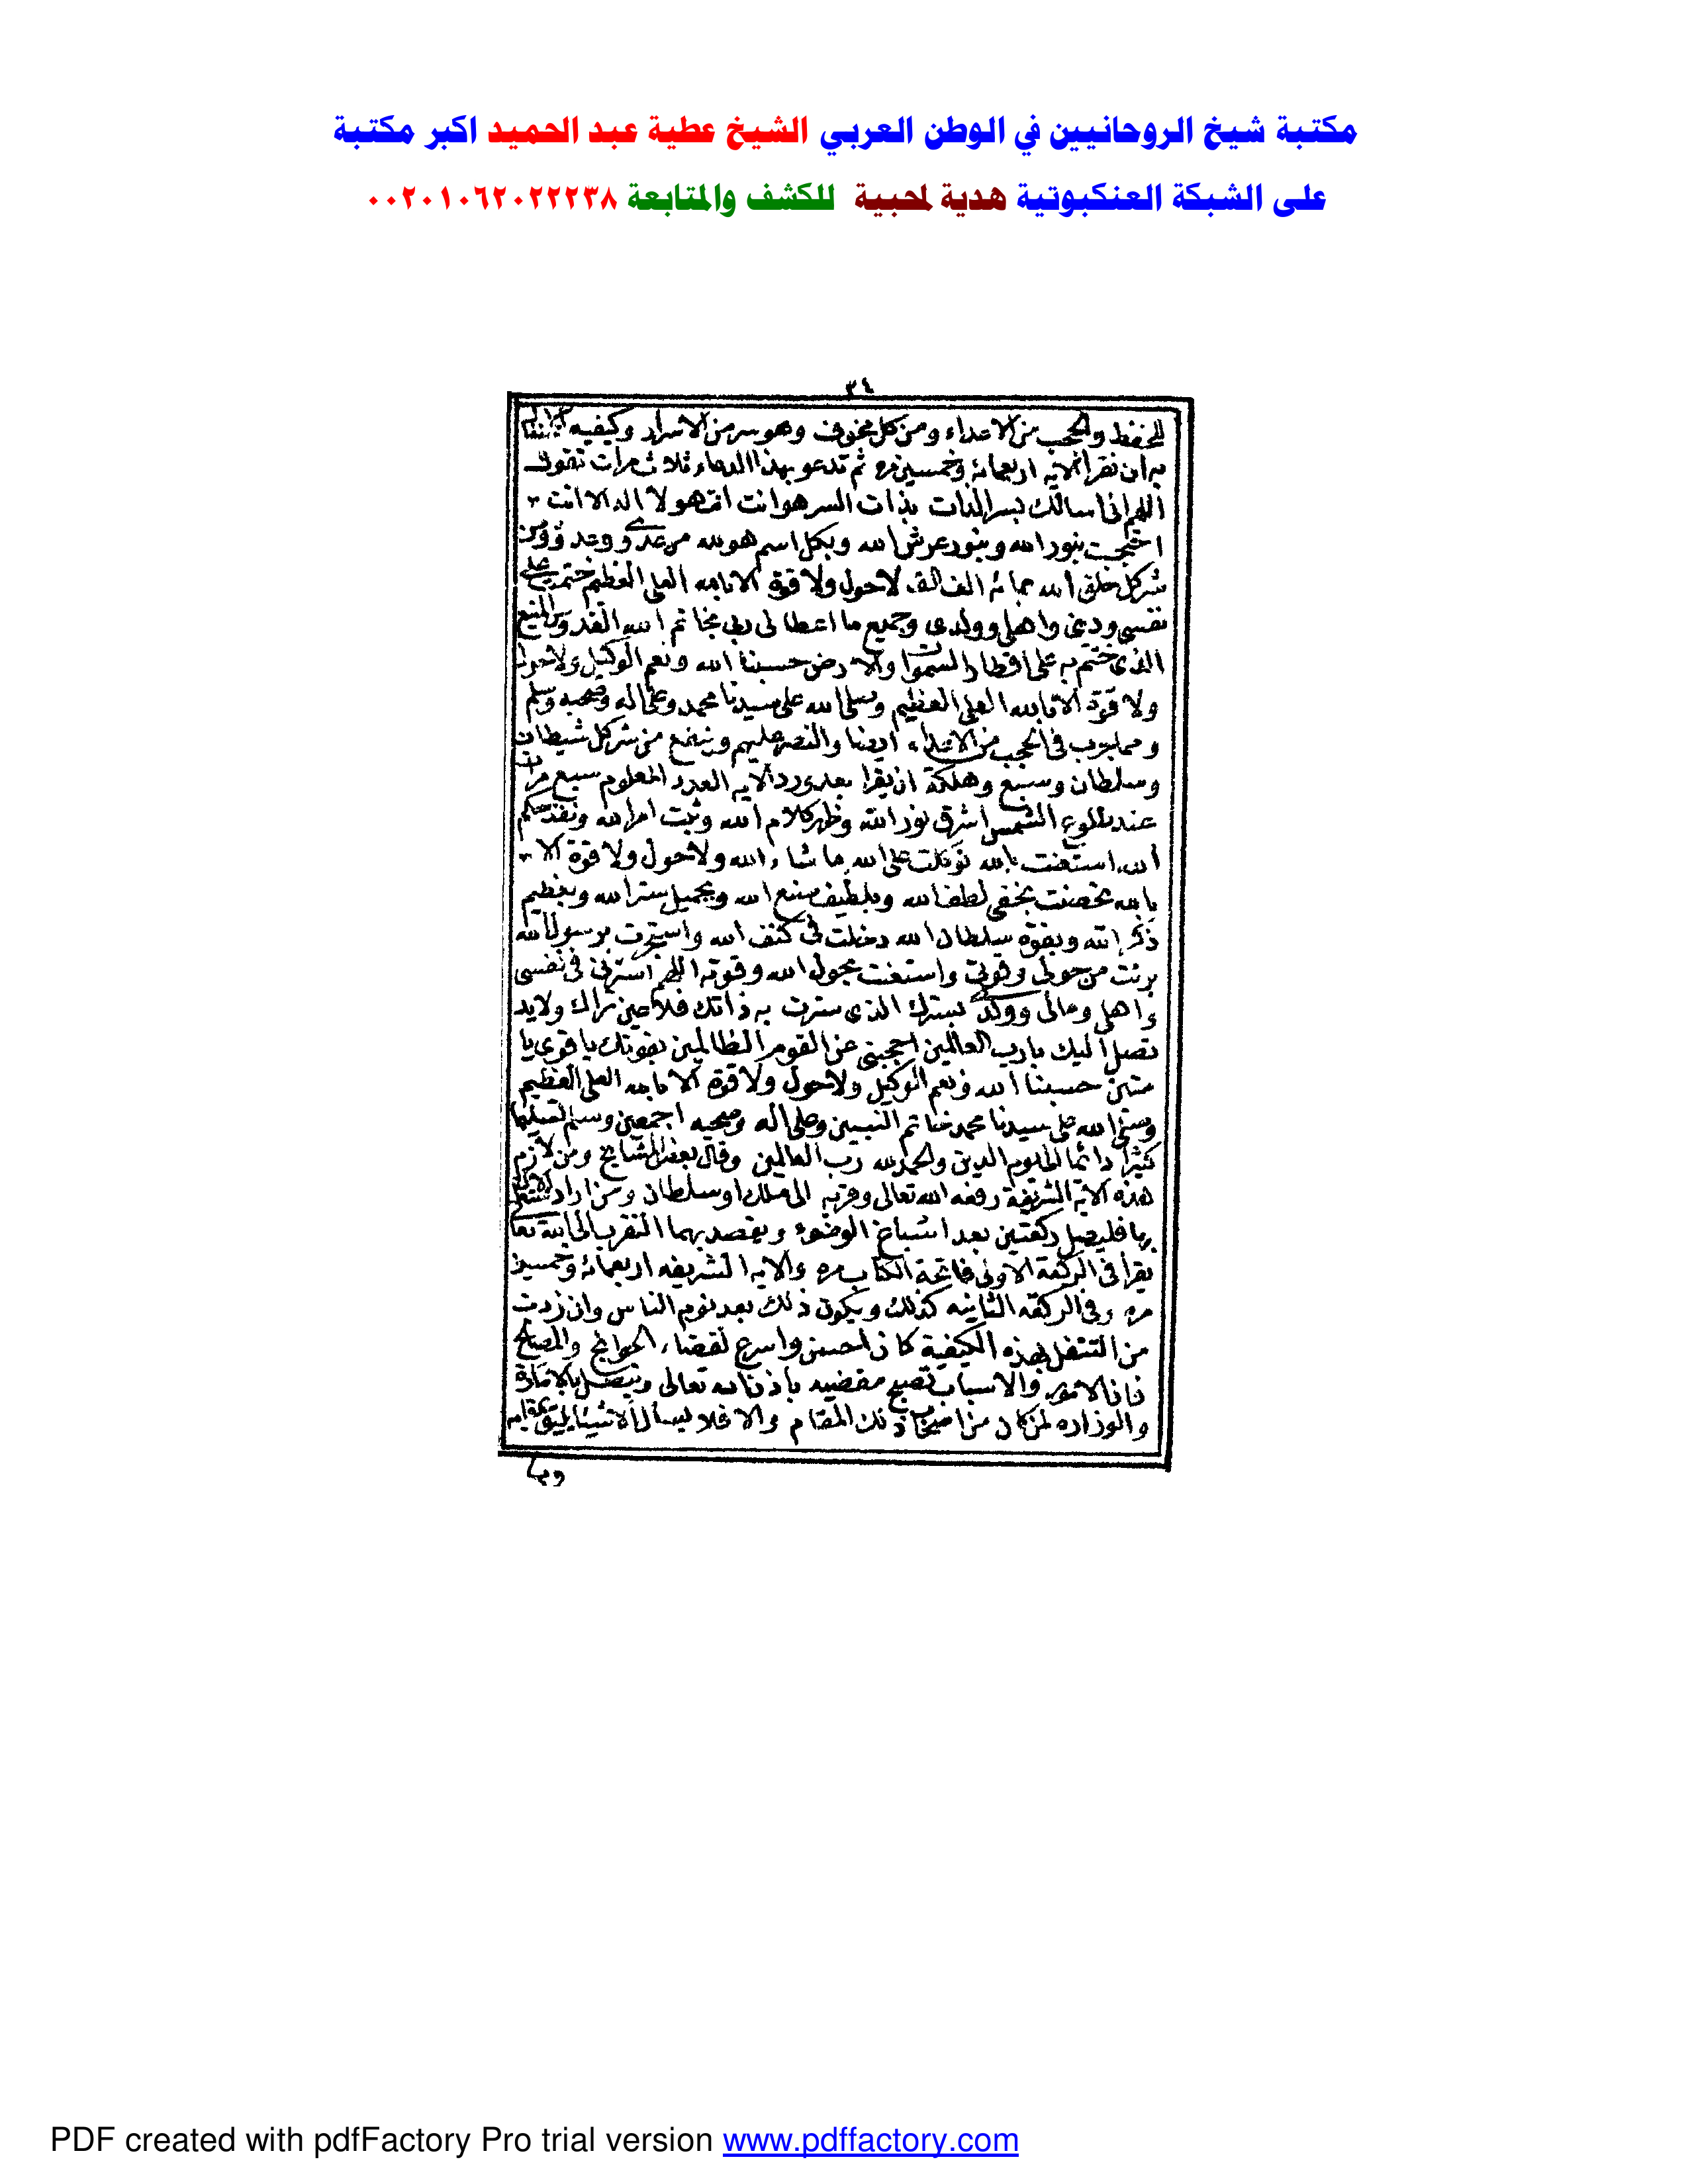 مكتبة شيخ الروحانيين في الوطن العربي الشيخ عطية عبد الحميد اكبر مكتبة
على الشبكة العنكبوتية هدية لمحبية للكشف والمتابعة ٠٠٢٠١٠٦٢٠٢٢٢٣٨
٣٤
للحفظ والحجب من الاعداء ومن كل مخوف وهو سر من الاسرار وكيفيه
به ان تقرا الايه اربعمائة وخمسين مره ثم تدعو بهذا الدعاء ثلاث مرات تقول
اللهم انى اسالك بسر الذات بذات السر هو انت انت هو لا اله الا انت
احتجبت بنور الله وبنور عرش الله وبكل اسم هو لله من عدوى وعدو الله ومن
شر كل خلق الله بمائة الف الف لاحول ولا قوة الا بالله العلى العظيم ختمت على
نفسى ودينى واهلى وولدى وجميع ما اعطانى ربى بخاتم الله القدوس المنيع
الذى ختم به على اقطار السموات والارض حسبنا الله ونعم الوكيل ولاحول
ولا قوة الا بالله العلى العظيم وصلى الله على سيدنا محمد وعلى اله وصحبه وسلم
ومما جرب فى الحجب من الاعداء ايضا والنصر عليهم وينفع من شر كل شيطان
وسلطان وسبع وهلكة ان يقرا بعد ورد الايه العدد المعلوم سبع مرات
عند طلوع الشمس اشرق نور الله وظهر كلام الله وثبت امر الله ونفذ حكم
الله استعنت بالله توكلت على الله ما شاء الله ولاحول ولا قوة الا
بالله تحصنت بخفى لطف الله وبلطيف صنع الله وبجميل ستر الله وبعظيم
ذكر الله وبقوة سلطان الله دخلت فى كنف الله واستجرت برسول الله
برئت من حولى وقوتى واستعنت بحول الله وقوته اللهم استرنى فى نفسى
واهلى ومالى وولدى بسترك الذى سترت به ذاتك فلا عين تراك ولايد
تصل اليك يارب العالمين احجبنى عن القوم الظالمين بقوتك يا قوى يا
متين حسبنا الله ونعم الوكيل ولاحول ولا قوة الا بالله العلى العظيم
وصلى الله على سيدنا محمد خاتم النبيين وعلى اله وصحبه اجمعين وسلم تسليما
كثيرا دائما الى يوم الدين والحمد لله رب العالمين وقال بعض المشايخ ومن لازم
هذه الاية الشريفة رفعه الله تعالى وقربه الى ملك او سلطان ومن اراد
بها فليصل ركعتين بعد اسباغ الوضوء ويقصد بهما التقرب الى الله تعالى
يقرا فى الركعة الاولى فاتحة الكتاب مره والايه الشريفه اربعمائة وخمسين
مره وفى الركعه الثانيه كذلك ويكون ذلك بعد نوم الناس وان زدت
من التنفل بهذه الكيفية كان احسن واسرع لقضاء الحوائج والمصالح
فان الامور والاسباب تصبح مقضيه باذن الله تعالى ويتصل بالامارة
والوزاره لمن كان من اصحاب ذلك المقام والا فلا يسال الا شيئا يليق بمقامه
PDF created with pdfFactory Pro trial version www.pdffactory.com